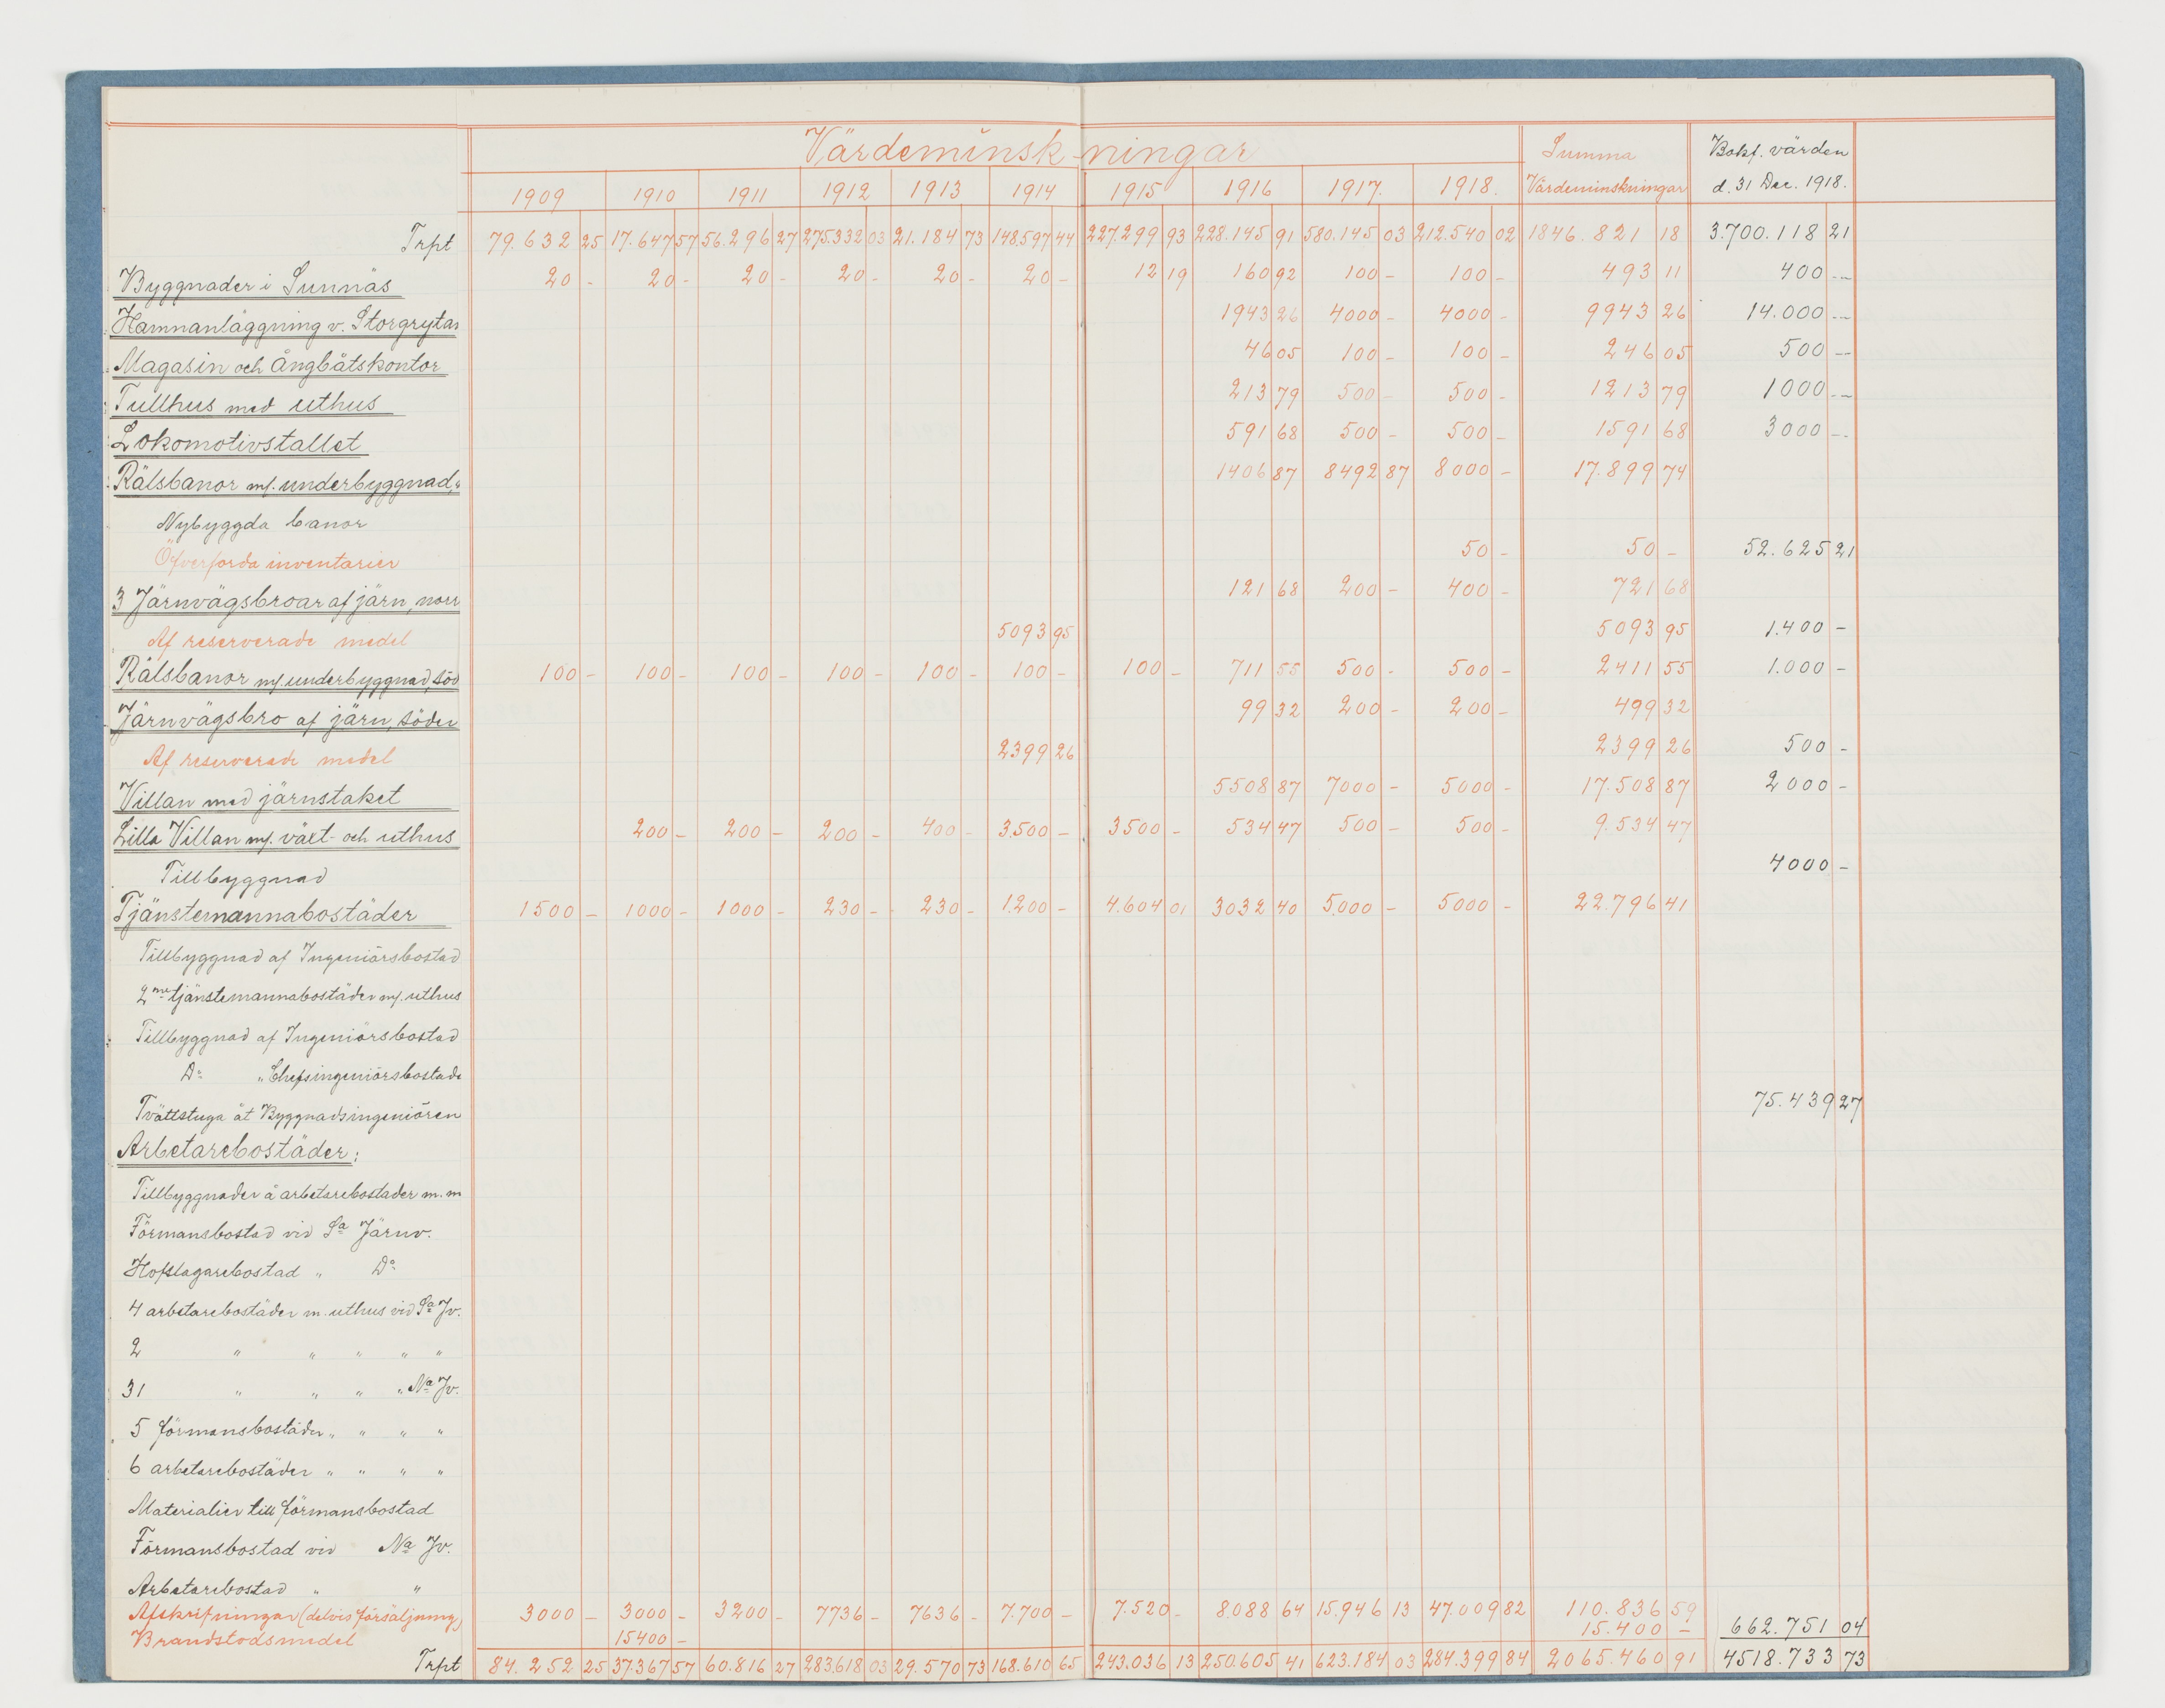 Värdeminskningar Summa Bokf. värden
1909 1910 1911 1912 1913 1914 1915 1916 1917. 1918. Värdeminskningar d. 31 Dec. 1918.
Trpt 79.632 25 17.647 57 56.296 27 275.332 03 21.184 73 148.597 44 227.299 93 228.145 91 580.145 03 212.540 02 1846.821 18 3.700.118 21
Byggnader i Sunnäs 20 - 20 - 20 - 20 - 20 - 20 - 12 19 160 92 100 - 100 - 493 11 400 --
Hamnanläggning v. Storgrytan 1943 26 4000 - 4000 - 9943 26 14.000 --
Magasin och Ångbåtskontor 46 05 100 - 100 - 246 05 500 --
Tullhus med uthus 213 79 500 - 500 - 1213 79 1000 --
Lokomotivstallet 591 68 500 - 500 - 1591 68 3000 --
Rälsbanor m/. underbyggnad, 1406 87 8492 87 8000 - 17.899 74
Nybyggda banor
Öfverförda inventarier 50 - 50 - 52.625 21
3 Järnvägsbroar af järn, norr 121 68 200 - 400 - 721 68
Af reserverade medel 5093 95 5093 95 1.400 -
Rälsbanor m/. underbyggnad, söd 100 - 100 - 100 - 100 - 100 - 100 - 100 - 711 55 500 - 500 - 2411 55 1.000 -
Järnvägsbro af järn, söder 99 32 200 - 200 - 499 32
Af reserverade medel 2399 26 2399 26 500 -
Villan med järnstaket 5508 87 7000 - 5000 - 17.508 87 2000 -
Lilla Villan m/. växt- och uthus 200 - 200 - 200 - 400 - 3.500 - 3500 - 534 47 500 - 500 - 9.534 47
Tillbyggnad 4000 -
Tjänstemannabostäder 1500 - 1000 - 1000 - 230 - 230 - 1.200 - 4.604 01 3032 40 5.000 - 5000 - 22.796 41
Tillbyggnad af Ingeniörsbostad
2ne tjänstemannabostäder m/. uthus
Tillbyggnad af Ingeniörsbostad
Do „ Chefsingeniörsbostade
Tvättstuga åt Byggnadsingeniören 75.439 27
Arbetarebostäder:
Tillbyggnader å arbetarebostäder m.m
Förmansbostad vid Sa Järnv.
Hofslagarebostad „ Do
4 arbetarebostäder m. uthus vid Sa Jv.
2 „ „ „ „ „
31 „ „ „ „ Na Jv.
5 förmansbostäder „ „ „ „
6 arbetarebostäder „ „ „ „
Materialier till förmansbostad
Förmansbostad vid Na Jv.
Arbetarebostad „ „
Afskrifningar (delvis försäljning) 3000 - 3000 - 3200 - 7736 - 7636 - 7.700 - 7.520 - 8.088 64 15.946 13 47.009 82 110.836 59
Brandstodsmedel 15400 - 15.400 - 662.751 04
Trpt 84.252 25 37.367 57 60.816 27 283.618 03 29.570 73 168.610 65 243.036 13 250.605 41 623.184 03 284.399 84 2065.460 91 4518.733 73